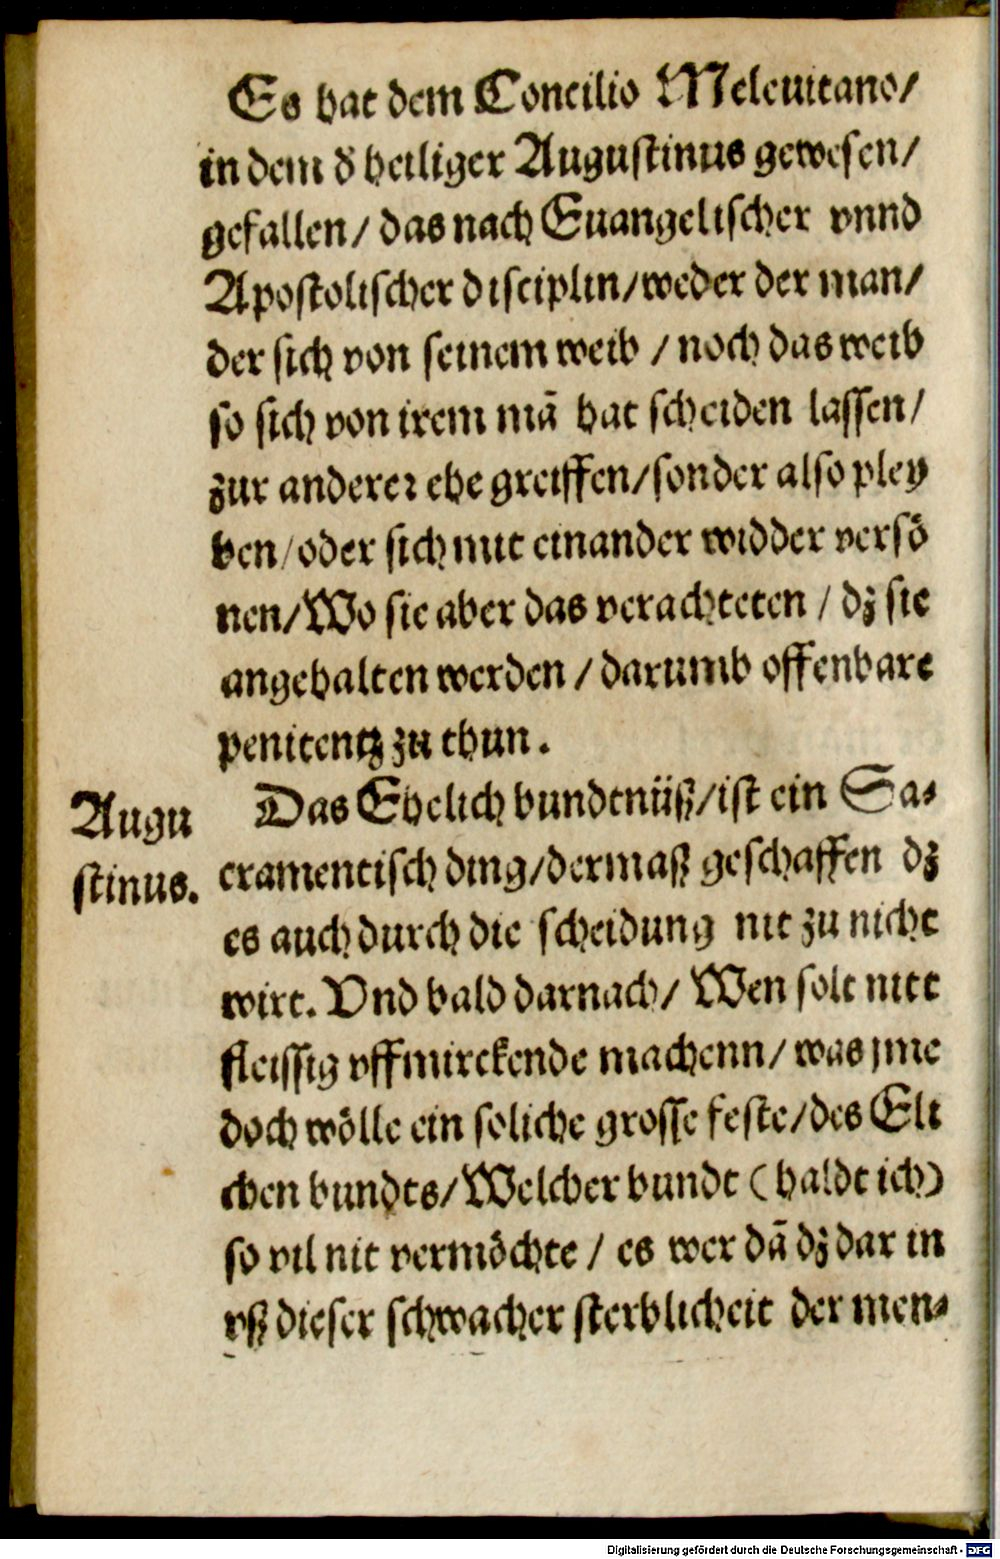 Es hat dem Concilio Meleuitano/
in dem d̄ heiliger Augustinus gewesen/
gefallen/ das nach Euangelischer vnnd
Apostolischer disciplin/weder der man/
der sich von seinem weib / noch das weib
so sich von irem mā hat scheiden lassen/
zur anderer ehe greiffen/sonder also pley
ben/oder sich mit einander widder versö
nen/Wo sie aber das verachteten / dz sie
angehalten werden / darumb offenbare
penitentz zu thun.
Augu
stinus.
Das Ehelich bundtnüß/ist ein Sa⸗
cramentisch ding/dermaß geschaffen dz
es auch durch die scheidung nit zu nicht
wirt. Vnd bald darnach/ Wen solt nitt
fleissig vffmirckende machenn/ was jme
doch wölle ein soliche grosse feste/des Eli
chen bundts/Welcher bundt (haldt ich)
so vil nit vermöchte / es wer dā dz dar in
vß dieser schwacher sterblicheit der men⸗
Digitalisierung gefördert durch die Deutsche Forschungsgemeinschaft - DFG